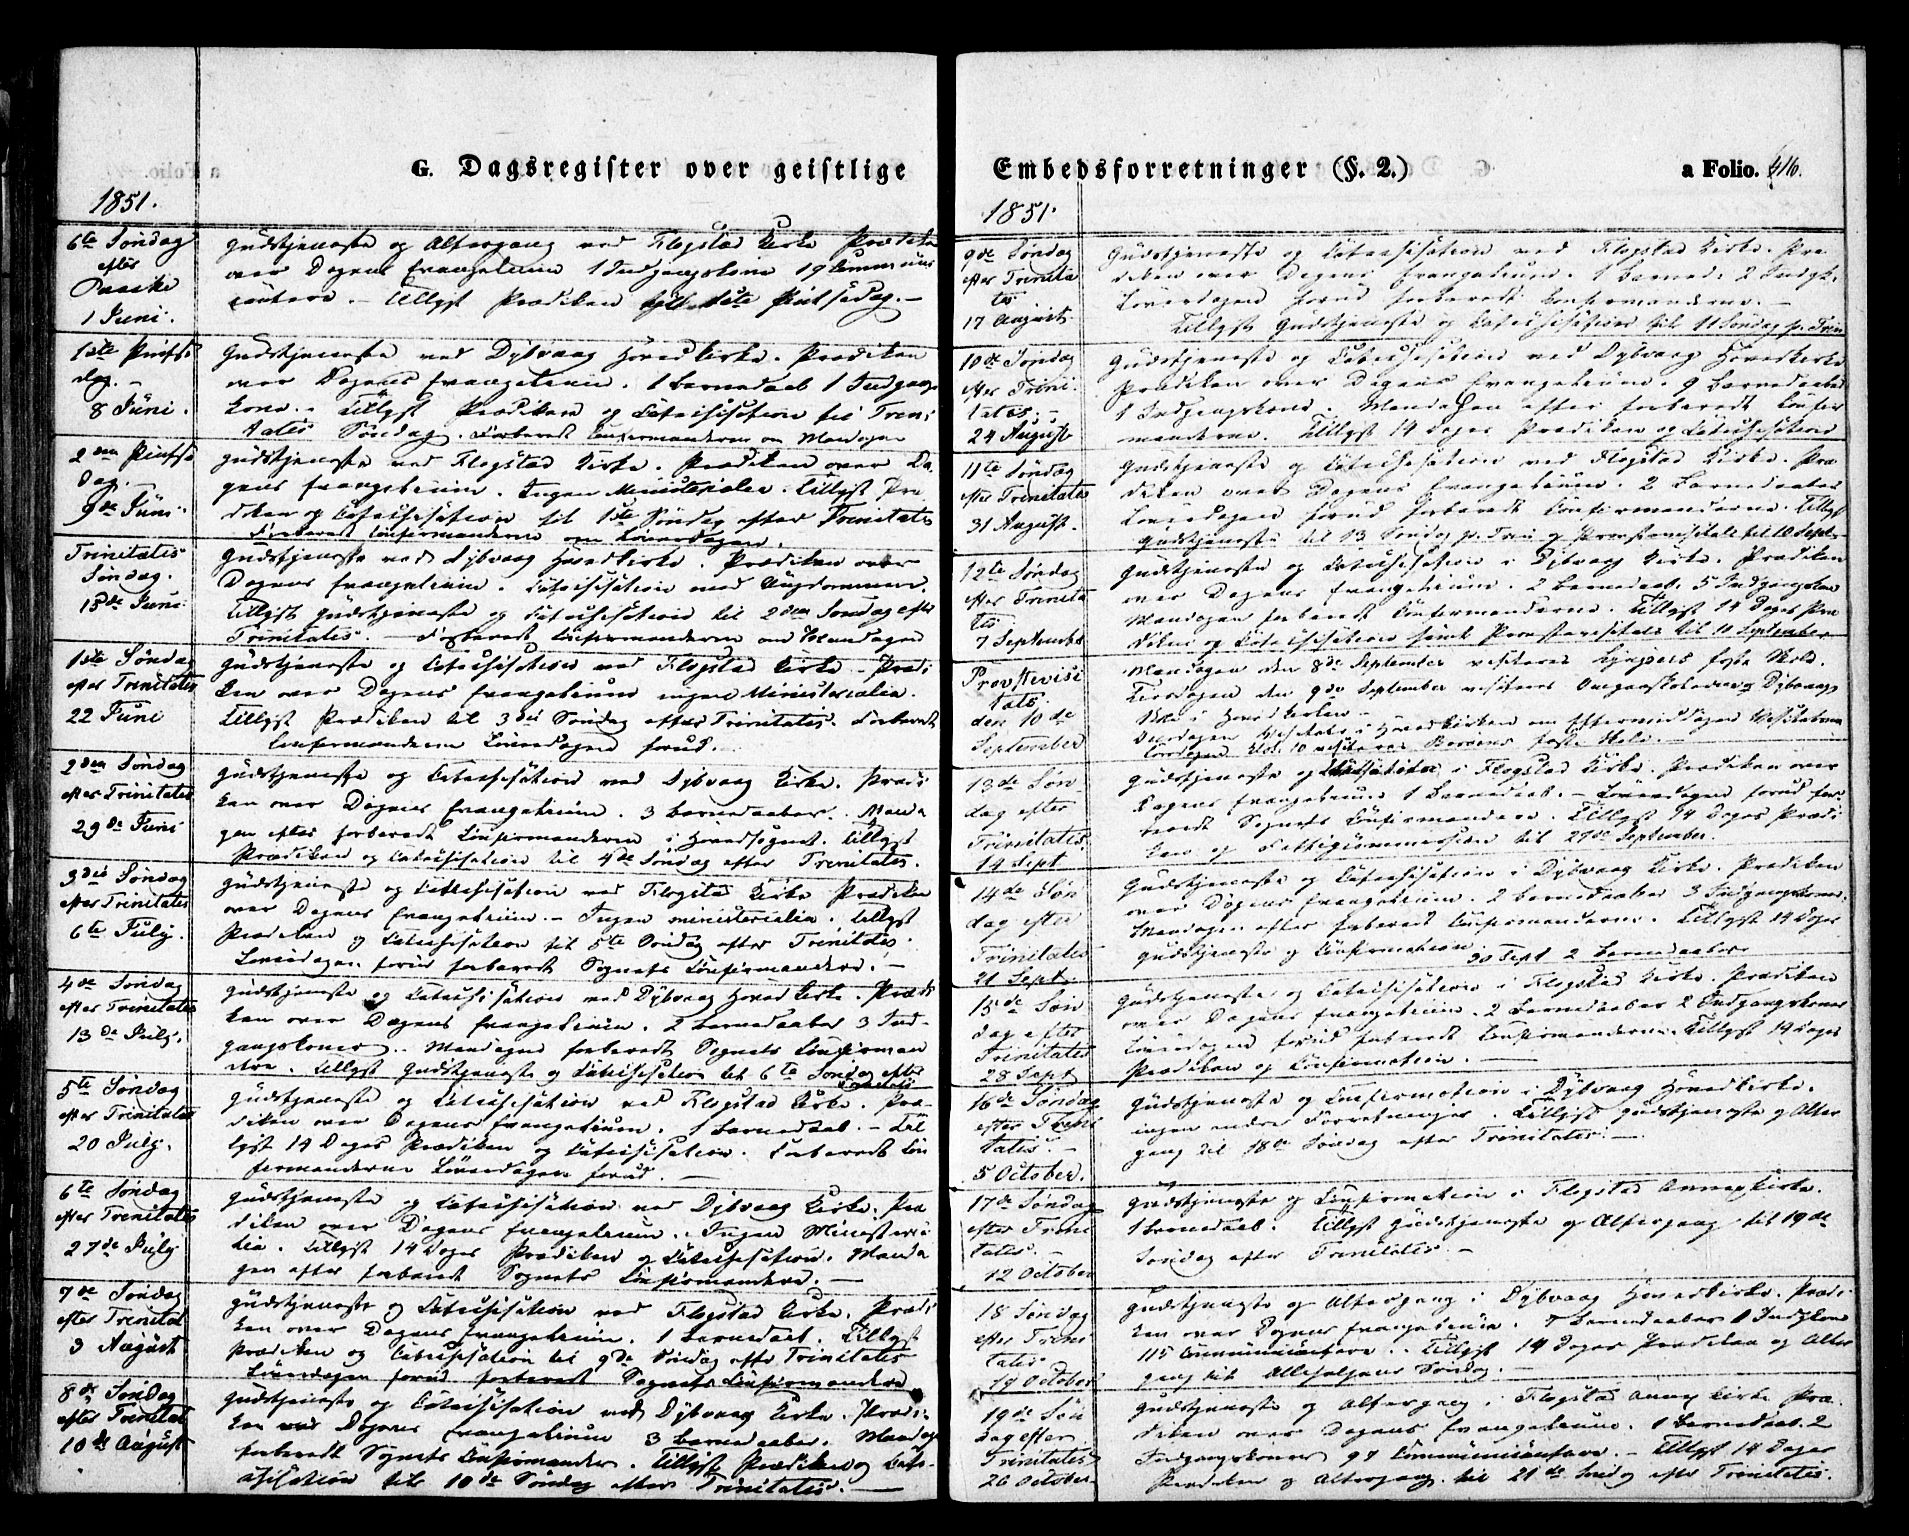 G. Dagsregister over geistlige
1851.
6te Søndag
efter
Paaske
1 Juni.
Gudstjeneste og Altergang ved Flagstad Kirke Prædiken
over Dagens Evangelium 1 Indgangskone 19 Commüni
cantere. – Tillyst Prædiken til 1ste Pintsedag. –
1ste Pintse
dag. –
8 Juni.
Gudstjeneste ved Dybvaag Hovedkirke. Prædiken
over Dagens Evangelium. 1 Barnedaab 1 Indgangs
kone. Tillyst Prædiken og Catechisation til Trini
tatis Søndag. Forberedt Confirmanderne om Mandagen
2den Pintse
Dag.
9de Juni.
Gudstjeneste ved Flagstad Kirke. Prædiken over Da
gens Evangelium. Ingen Ministerialia. Tillyst Præ
diken og Catechisation til 1ste Søndag efter Trinitatis
Forberedt Confirmanderne om Løverdagen.
Trinitatis
Søndag.
15de Juni
Gudstjeneste ved Dybvaag Hovedkirke. Prædiken over
Dagens Evangelium. Catechisation med Ungdommen.
Tillyst Gudstjeneste og Catechisation til 2den Søndag efter
Trinitatis. – Forberedt Confirmanderne om Mandagen
1ste Søndag
efter Trinitatis
22 Juni
Gudstjeneste og Catechisation ved Flagstad Kirke – Prædi
ken over Dagens Evangelium ingen Ministerialia.
Tillyst Prædiken til 3die Søndag efter Trinitatis. Forberedt
Confirmanderne Løverdagen forud.
2den Søndag
efter Trinitatis
29de Juni
Gudstjeneste og Catechisation ved Dybvaag Kirke. Prædi
ken over Dagens Evangelium. 3 Barnedaaber. Manda
gen efter forberedt Confirmanderne i Hovedsognet. Tillyst
Prædiken og Catechisation til 4de Søndag efter Trinitatis.
3die Søndag
efter Trinitatis
6te July.
Gudstjeneste og Catechisation ved Flagstad Kirke Prædiken
over Dagens Evangelium. – Ingen ministerialia. Tillyst
Prædiken og Catechisation til 5te Søndag efter Trinitatis.
Løverdagen forud forberedt Sognets Confirmandere. –
4de Søndag
efter Trinitatis
13de July.
Gudstjeneste og Catechisation ved Dybvaag Hoved Kirke. Prædi
ken over Dagens Evangelium. 2 Barnedaaber 3 Ind-
gangskoner. Mandagen forberedt Sognets Confirman
dere. Tillyst Gudstjeneste og Catechisation til 6te Søndag efter
Trinitatis
5te Søndag
efter Trinitatis
20 July.
Gudstjeneste og Catechisation ved Flagstad Kirke Præ-
diken over Dagens Evangelium. 1 Barnedaab. – Til
lyst 14 Dages Prædiken og Catechisation. Forberedt Con
firmanderne Løverdagen forud. –
6te Søndag
efter Trinitatis
27de July
Gudstjeneste og Catechisation ved Dybvaag Kirke. Præ
diken over Dagens Evangelium. Ingen Ministeria
lia. Tillyst 14 Dages Prædiken og Catechisation. Manda
gen efter forberedt Sognets Confirmandere. –
7de Søndag
efter Trinitat
3 August
Gudstjeneste og Catechisation ved Flagstad Kirke. Prædi
ken over Dagens Evangelium. 1 Barnedaab. Tillyst
Prædiken og Catechisation til 9de Søndag efter Trinitatis
Løverdagen forud forberedt Sognets Confirmandere
8de Søndag
efter Trinitat
10de August
Gudstjeneste og Catechisation ved Dybvaag Kirke. Prædi-
ken over Dagens Evangelium 3 Barnedaaber. Mandag
forberedt Sognets Confirmander. Tillyst Prædiken og Cate-
chisation til 10de Søndag efter Trinitatis. –
Embedsforretninger (§. 2.)
a Folio. 416.
1851.
9de Søndag
efter Trinita
tis
17 August
Gudstjeneste og Catechisation ved Flagstad Kirke. Præ
diken over Dagens Evangelium. 1 Barned. 2 Indgk.
Løverdagen forud forberedt Confirmanderne. –
Tillyst Gudstjeneste og Catechisation til 11 Søndag p. Trin
10de Søndag
efter Trini
tatis. –
24 August
Gudstjeneste og Catechisation ved Dybvaag Hovedkirke
Prædiken over Dagens Evangelium. 9 Barnedaaber
1 Indgangskone. Mandagen efter forberedt Confir
manderne. Tillyst 14 Dages Prædiken og Catechisation
11te Søndag
efter Trinitatis
31 August.
Gudstjeneste og Catechisation ved Flagstad Kirke. Præ
diken over Dagens Evangelium. 2 Barnedaaber
Løverdagen forud forberedt Confirmanderne. Tillyst
Gudstjeneste til 13 Søndag p. Trin og Provstevisitats til 10 Septbr.
12te Søndag
efter Trinita
tis
7 September
Gudstjeneste og Catechisation i Dybvaag Kirke. Prædiken
over Dagens Evangelium. 2 Barnedaab. 5 Indgangskon
Mandagen forberedt Confirmanderne. Tillyst 14 Dages Præ
diken og Catechisation samt Provstevisitats til 10 September
Provstevisi
tats.
den 10de
September
Mandagen den 8de September visiteres Lyngørs faste Skole.
Tirsdagen den 9de September visiteres Omgangsskolerne Dybvaags
i Hovedkirken –
Onsdagen Visitats i Hovedkirken om Eftermiddagen
Torsdagen Kl. 10 visiteres faste Skole.
13de Søn
dag efter
Trinitatis.
14 Sept
Gudstjeneste og Catechisation i Flagstad Kirke. Prædiken over
Dagens Evangelium 1 Barnedaab. – Løverdagen forud for-
beredt Sognets Confirmandere. Tillyst 14 Dages Prædi
ken og Fattigcommission til 27de September.
14de Søn
dag efter
Trinitatis
21 Sept.
Gudstjeneste og Catechisation i Dybvaag Kirke. Prædiken
over Dagens Evangelium. 2 Barnedaaber 3 Indgangskoner.
Mandagen efter forberedt Confirmanderne. Tillyst 14 Dages
Gudstjeneste og Confirmation 30 Sept 2 Barnedaaber
15de Søn
dag efter
Trinitatis
28 Sept
Gudstjeneste og Catechisation i Flagstad Kirke. Prædiken
over Dagens Evangelium. 2 Barnedaaber 2 Indgangskoner
Løverdagen forud forberedt Confirmanderne. Tillyst 14 Dages
Prædiken og Confirmation. –
16de Søndag
efter Trini
tatis. –
5 October.
Gudstjeneste og Confirmation i Dybvaag Hovedkirke.
ingen andre Forretninger. Tillyst Gudstjeneste og Alter
gang til 18de Søndag efter Trinitatis. –
17de Søndag
efter Trini
tatis. –
12 October
Gudstjeneste og Confirmation i Flagstad Annexkirke.
1 Barnedaab. Tillyst Gudstjeneste og Altergang til 19de
Søndag efter Trinitatis. –
18 Søndag
efter Trini
tatis
19 October
Gudstjeneste og Altergang i Dybvaag Hovedkirke. Prædi
ken over Dagens Evangelium. 7 Barnedaaber 1 Indgkone
115 Communicantere. Tillyst 14 Dages Prædiken og Alter
gang til Allehelgens Søndag. –
19de Søn
dag efter
Trinitatis
26 October
Gudstjeneste og Altergang i Flagstad Annex Kirke Præ-
diken over Dagens Evangelium. 1 Barnedaab. 2
Indgangskoner 97 Communicantere. – Tillyst 14 Dages
Prædiken og Altergang til 21de Søndag efter Trinitatis.